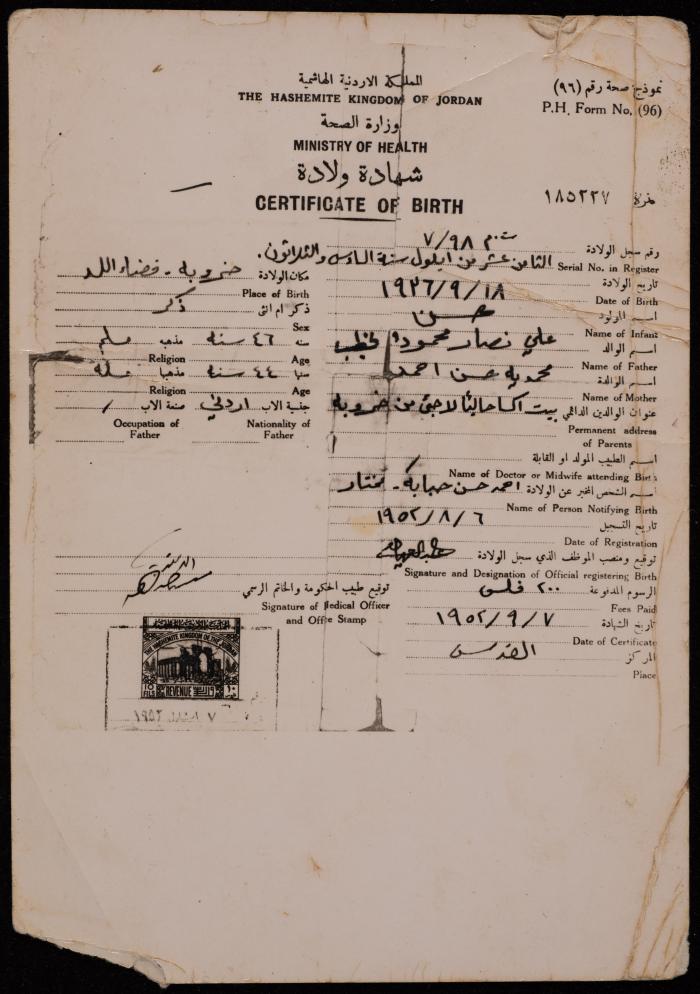 المملكة الاردنية الهاشمية
THE HASHEMITE KINGDOM OF JORDAN
وزارة الصحة
MINISTRY OF HEALTH
شهادة ولادة
CERTIFICATE OF BIRTH
نموذج صحة رقم (٩٦)
P.H. Form No. (96)
نمرة ١٨٥٢٢٧
رقم سجل الولادة ٧/٩٨
Serial No. in Register
الثامن عشر من ايلول سنة السادس والثلاثون.
تاريخ الولادة ١٩٣٦/٩/١٨
Date of Birth
اسم المولود حسن
Name of Infant
اسم الوالد علي نصار محمود
Name of Father
اسم الوالدة محمدية حسن احمد
Name of Mother
عنوان الوالدين الدائمي بيت اكسا حاليا لاجئ من خروبه
Permanent address
of Parents
اسم الطبيب المولد او القابلة
Name of Doctor or Midwife attending Birth
اسم الشخص المخبر عن الولادة احمد حسن - مختار
Name of Person Notifying Birth
تاريخ التسجيل ١٩٥٢/٨/٦
Date of Registration
توقيع ومنصب الموظف الذي سجل الولادة
Signature and Designation of Official registering Birth
الرسوم المدفوعة ٢٠٠ فلس
Fees Paid
تاريخ الشهادة ١٩٥٢/٩/٧
Date of Certificate
المركز القدس
Place
مكان الولادة خروبه - قضاء اللد
Place of Birth
ذكر ام انثى ذكر
Sex
سنه ٤٦ سنة مذهبه مسلم
Age Religion
سنها ٤٤ سنة مذهبها مسلمة
Age Religion
جنسية الاب اردني صنعة الاب /
Nationality of Father
Occupation of Father
توقيع طبيب الحكومة والخاتم الرسمي
Signature of Medical Officer
and Office Stamp
THE HASHEMITE KINGDOM OF THE JORDAN
10 FILS
REVENUE